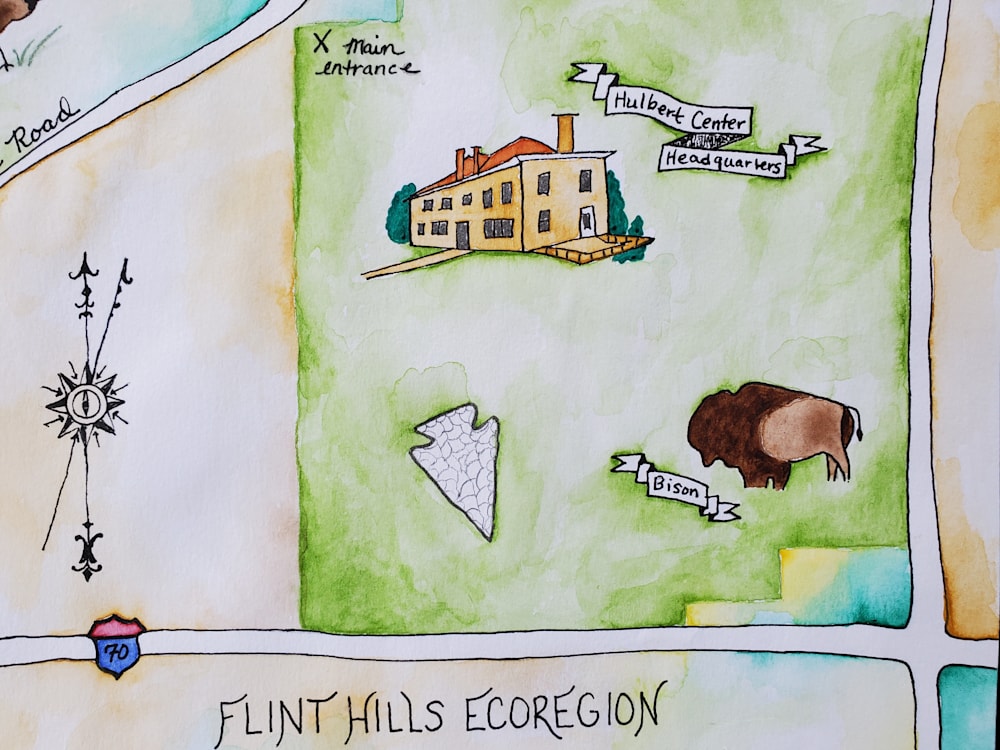 X Main
entrance
Road
Hulbert Center
Headquarters
Bison
70
FLINT HILLS ECOREGION